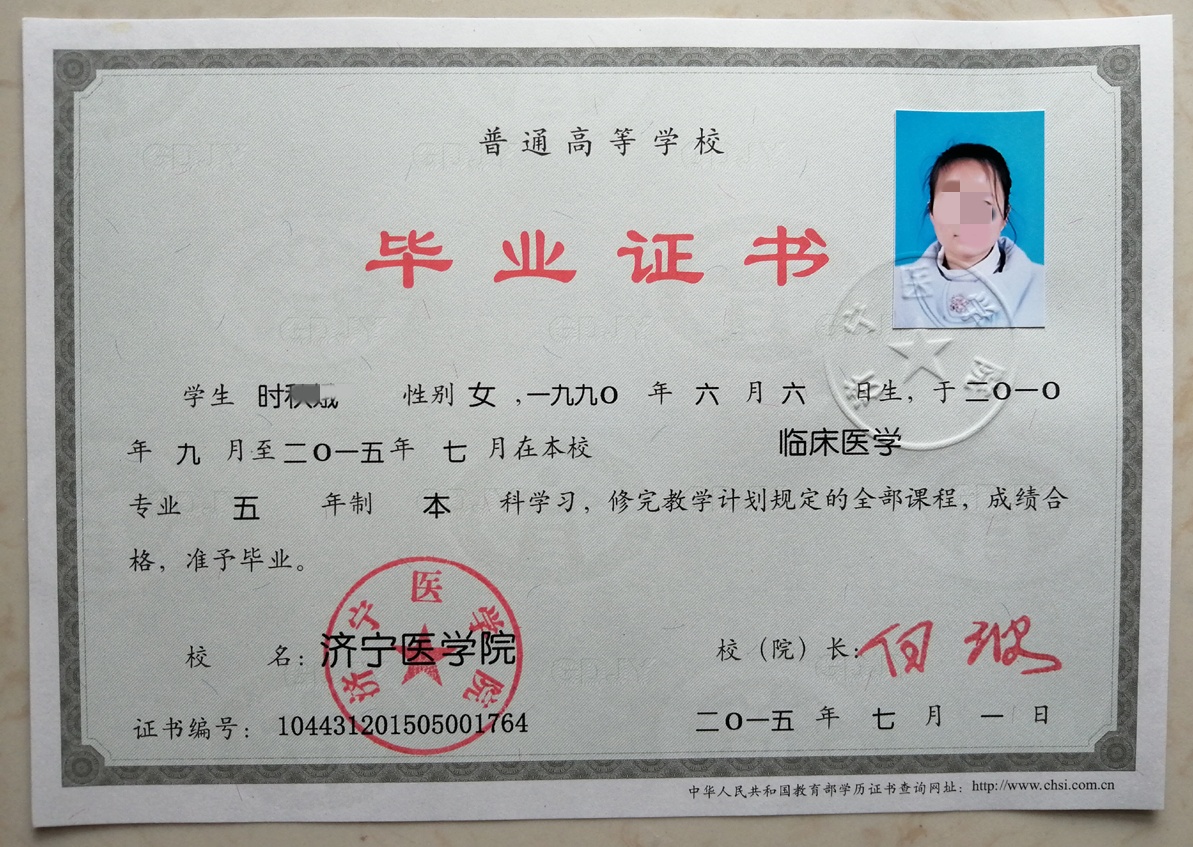 普通高等学校
毕业证书
学生 时 性别 女 ,一九九〇 年 六 月 六 日生，于 二〇一〇
年 九 月至 二〇一五年 七 月在本校 临床医学
专业 五 年制 本 科学习，修完教学计划规定的全部课程，成绩合
格，准予毕业。
校 名：济宁医学院
济宁医学院
校（院）长：
证书编号：104431201505001764
二〇一五 年 七 月 一 日
中华人民共和国教育部学历证书查询网址：http://www.chsi.com.cn